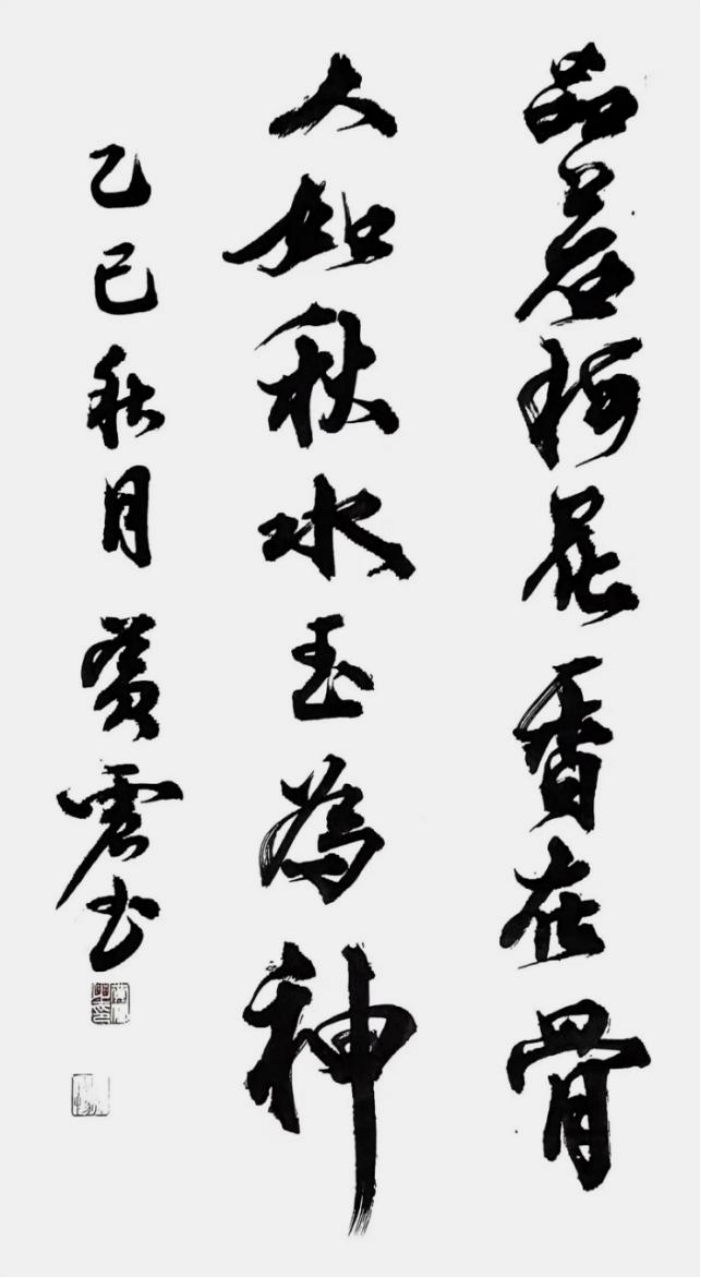 品若梅花香在骨
人如秋水玉為神
乙巳秋月黄震书